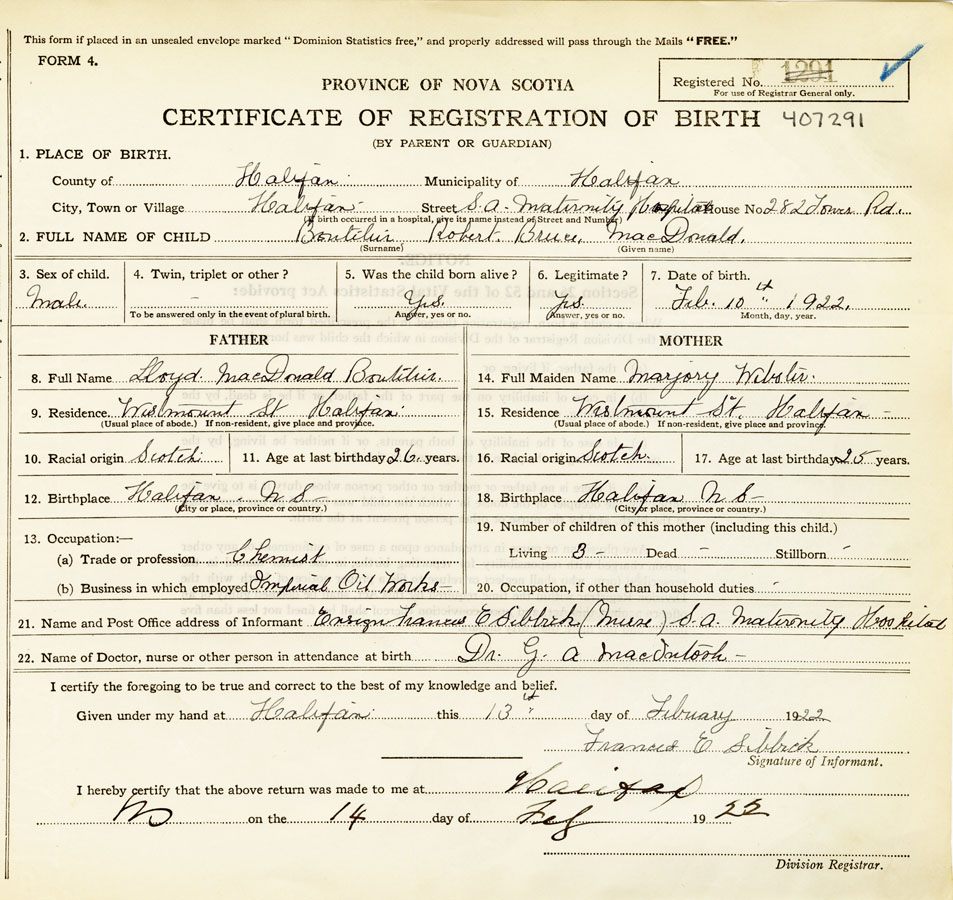 This form if placed in an unsealed envelope marked "Dominion Statistics free," and properly addressed will pass through the Mails "FREE."
FORM 4.
Registered No. 1291
For use of Registrar General only.
PROVINCE OF NOVA SCOTIA
CERTIFICATE OF REGISTRATION OF BIRTH 407291
(BY PARENT OR GUARDIAN)
1. PLACE OF BIRTH.
County of Halifax Municipality of Halifax
City, Town or Village Halifax Street S.A. Maternity Hospital House No. 282 Tower Rd.
(If birth occurred in a hospital, give its name instead of Street and Number)
2. FULL NAME OF CHILD Boutilier, Robert Bruce, MacDonald.
(Surname) (Given name)
3. Sex of child. 4. Twin, triplet or other? 5. Was the child born alive? 6. Legitimate? 7. Date of birth.
Male. - Yes. Yes. Feb. 10th 1922.
To be answered only in the event of plural birth. Answer, yes or no. Answer, yes or no. Month, day, year.
FATHER
8. Full Name Lloyd MacDonald Boutilier.
9. Residence. Westmount St Halifax.
(Usual place of abode.) If non-resident, give place and province.
10. Racial origin Scotch 11. Age at last birthday 26 years.
12. Birthplace Halifax. N S-
(City or place, province or country.)
13. Occupation:—
(a) Trade or profession Chemist
(b) Business in which employed Imperial Oil Works-
MOTHER
14. Full Maiden Name Marjory Webster.
15. Residence Westmount St. Halifax -
(Usual place of abode.) If non-resident, give place and province.
16. Racial origin Scotch. 17. Age at last birthday 25 years.
18. Birthplace Halifax N S-
(City or place, province or country.)
19. Number of children of this mother (including this child.)
Living 3 - Dead - Stillborn -
20. Occupation, if other than household duties -
21. Name and Post Office address of Informant Ensign Frances E Sibbick (Nurse) S.A. Maternity Hospital
22. Name of Doctor, nurse or other person in attendance at birth Dr. G. A MacIntosh -
I certify the foregoing to be true and correct to the best of my knowledge and belief.
Given under my hand at Halifax this 13th day of February 1922
Frances E Sibbick
Signature of Informant.
I hereby certify that the above return was made to me at Halifax
NS on the 14 day of Feb 1922
Division Registrar.